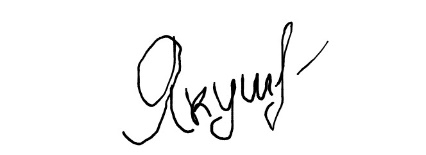 Якуш